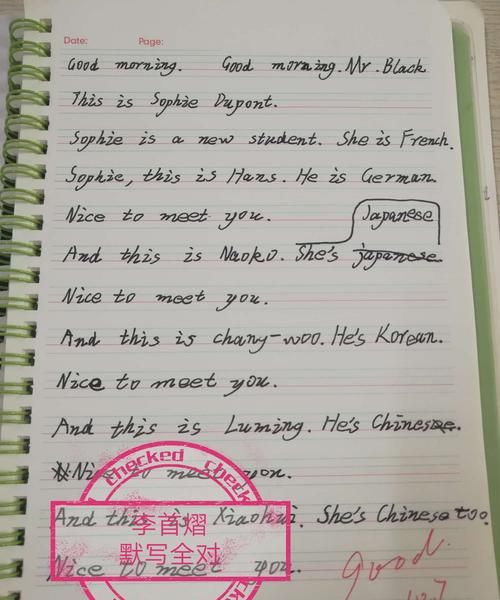 Date: Page:
Good morning. Good morning. Mr. Black.
This is Sophie Dupont.
Sophie is a new student. She is French.
Sophie, this is Hans. He is German.
Nice to meet you. Japanese
And this is Naoko. She's japanese
Nice to meet you.
And this is chang-woo. He's Korean.
Nice to meet you.
And this is Luming. He's Chinese.
Nice to meet you.
And this is Xiaohui. She's Chinese too.
Nice to meet you.
checked Check
李首熠
默写全对
good.